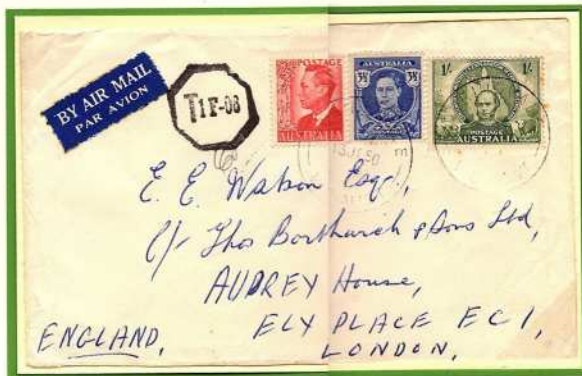 BY AIR MAIL
PAR AVION
T1F-08
POSTAGE
AUSTRALIA
AUSTRALIA
3½D 3½D
POSTAGE
1/- 1/-
POSTAGE
AUSTRALIA
E. E. Watson Esq.,
C/- Thos Borthwick & Sons Ltd,
AUDREY House,
ELY PLACE EC1,
ENGLAND, LONDON,